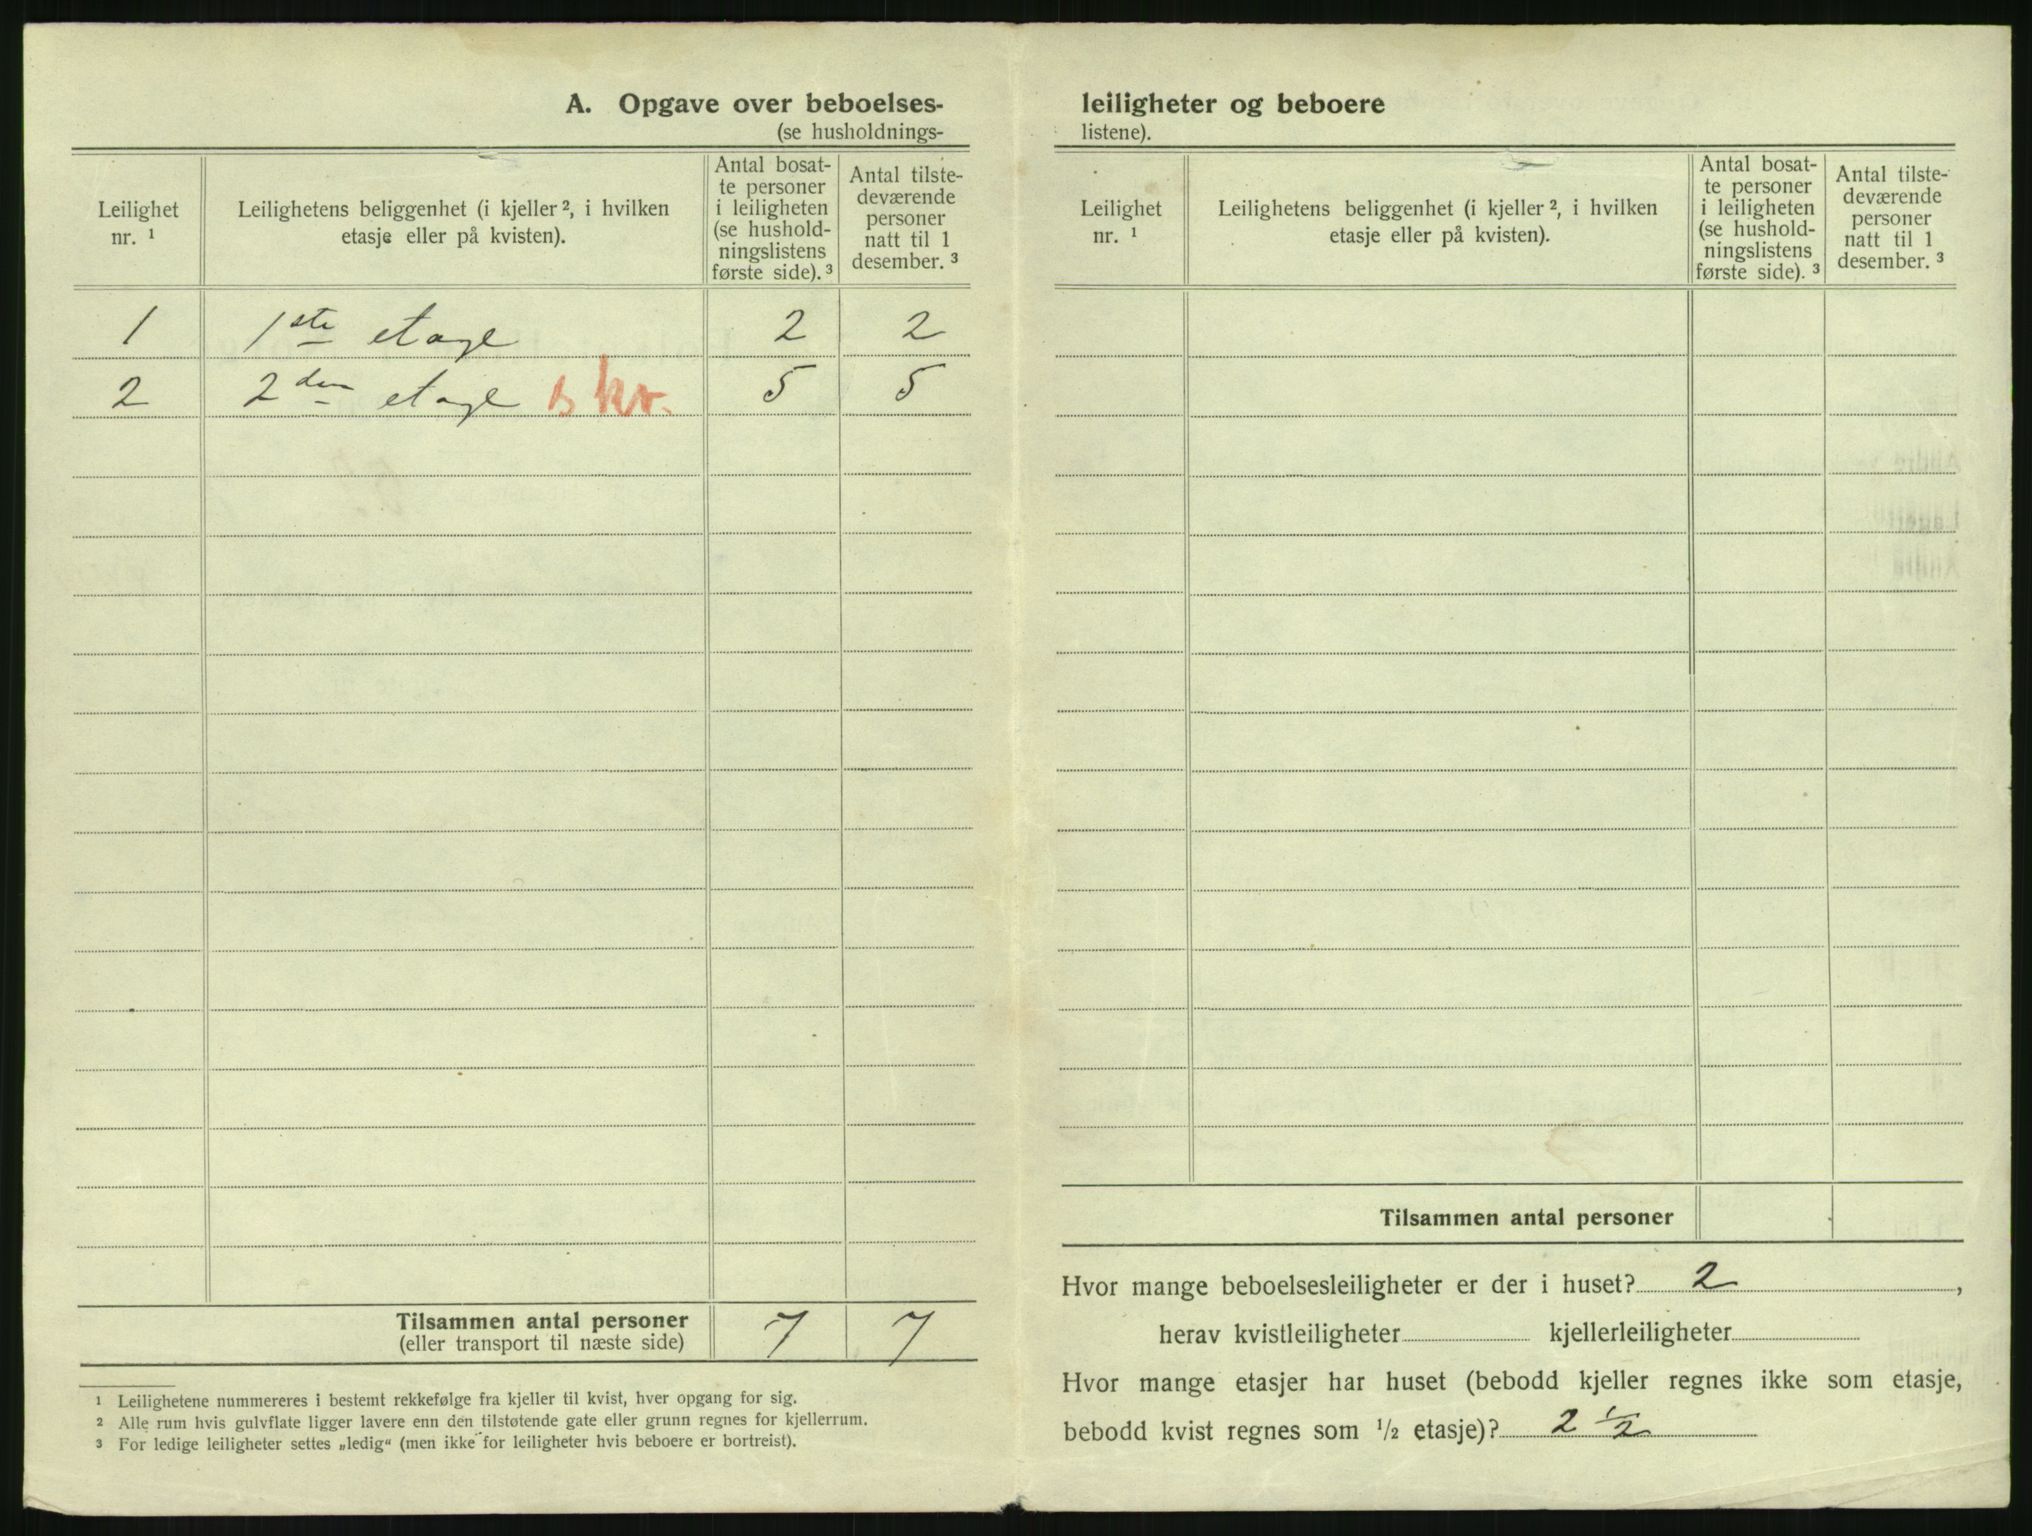 A. Opgave over beboelses-
(se husholdnings-
Leilighet
nr. ¹
Leilighetens beliggenhet (i kjeller ², i hvilken
etasje eller på kvisten).
Antal bosat-
te personer
i leiligheten
(se hushold-
ningslistens
første side). ³
Antal tilste-
deværende
personer
natt til 1
desember. ³
1 1ste etage 2 2
2 2den etage kv. 5 5
Tilsammen antal personer 7 7
(eller transport til næste side)
¹ Leilighetene nummereres i bestemt rekkefølge fra kjeller til kvist, hver opgang for sig.
² Alle rum hvis gulvflate ligger lavere enn den tilstøtende gate eller grunn regnes for kjellerrum.
³ For ledige leiligheter settes „ledig“ (men ikke for leiligheter hvis beboere er bortreist).
leiligheter og beboere
listene).
Leilighet
nr. ¹
Leilighetens beliggenhet (i kjeller ², i hvilken
etasje eller på kvisten).
Antal bosat-
te personer
i leiligheten
(se hushold-
ningslistens
første side). ³
Antal tilste-
deværende
personer
natt til 1
desember. ³
Tilsammen antal personer
Hvor mange beboelsesleiligheter er der i huset? 2 ,
herav kvistleiligheter kjellerleiligheter
Hvor mange etasjer har huset (bebodd kjeller regnes ikke som etasje,
bebodd kvist regnes som ½ etasje)? 2 ½